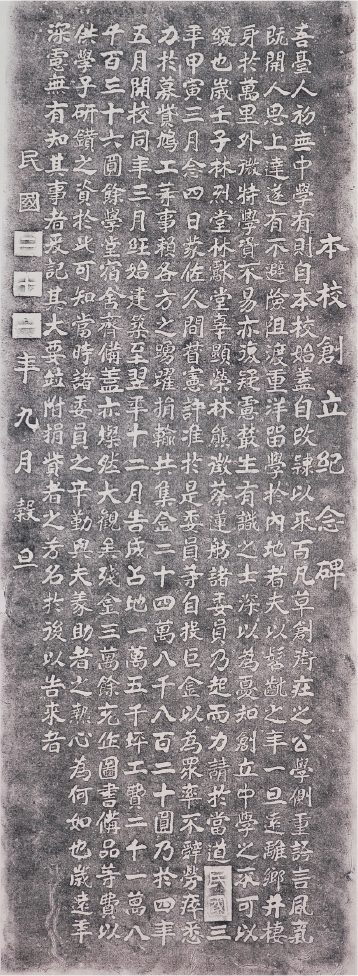 本校創立紀念碑
吾臺人初無中學有則自本校始蓋自改隸以來百凡草創街庄之公學側重語言風氣
既開人思上達遂有不避險阻渡重洋留學於內地者夫以髫齔之年一旦遠離鄉井棲
身於萬里外微特學資不易亦復疑慮叢生有識之士深以為憂知創立中學之不可以
緩也歲壬子林烈堂林獻堂辜顯榮林熊徵蔡蓮舫諸委員乃起而力請於當道民國三
年甲寅三月念四日蒙佐久間督憲許准於是委員等自投巨金以為眾率不辭勞瘁悉
力於募貲鳩工等事賴各方之踴躍捐輸共集金二十四萬八千八百二十圓乃於四年
五月開校同年三月旺始建築至翌年十二月告成占地一萬五千坪工費二十一萬八
千百三十六圓餘學堂宿舍齊備蓋亦燦然大觀矣殘金三萬餘充作圖書備品等費以
供學子研鑽之資於此可知當時諸委員之辛勤與夫義助者之熱心為何如也歲遠年
深慮無有知其事者爰記其大要竝附捐貲者之芳名於後以告來者
民國三十三年九月穀旦